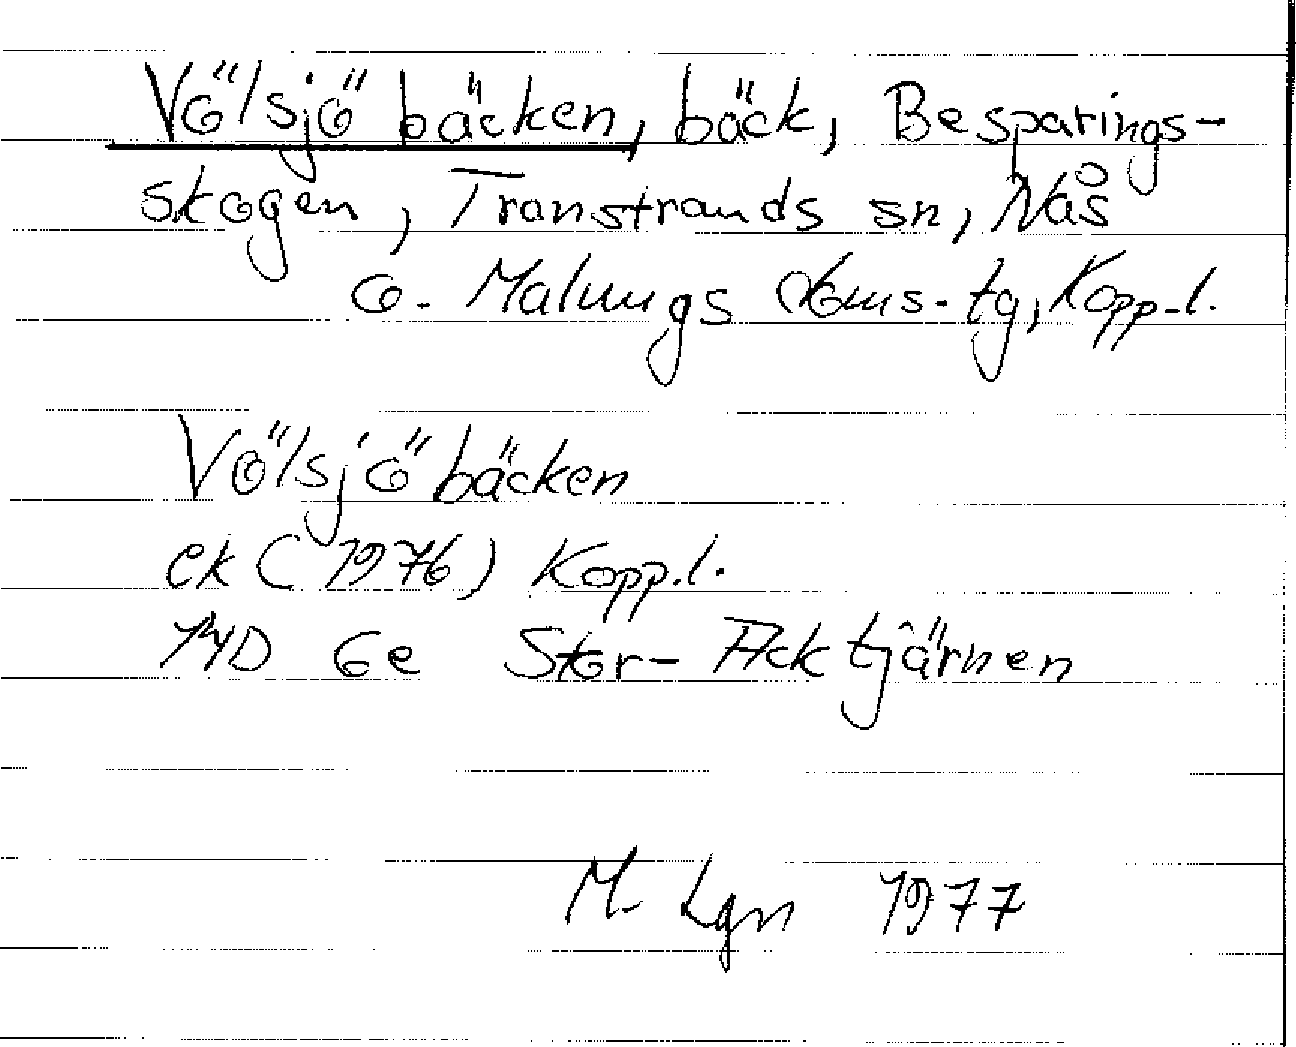 Völsjöbäcken, bäck, Besparings-
skogen, Transtrands sn, Nås
o. Malungs doms. tg, Kopp. l.
Völsjöbäcken
ek (1976) Kopp. l.
14D 6e Stor-Acktjärnen
M. Lgn 1977